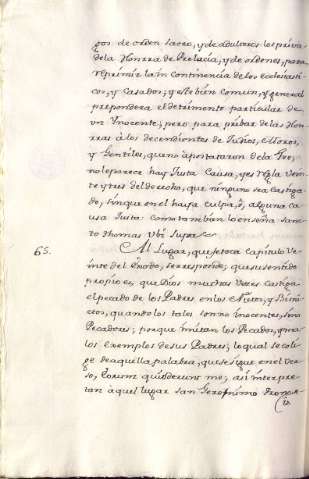 gos de orden sacro, y de adulteros los priva
dela Honrra de Prelacia, y de ordenes, para
reprimir la in continencia de los ecclesiasti-
cos, y Casados; y este bien comun, y general
prepondera el detrimento particular de
un Inocente; pero para privar de las Hon
rras à los decendientes de Judios, Moros,
y Gentiles, que no apostataron de la Fee,
no le parece hay Justa Causa, y es regla vein-
te y tres del derecho, que ninguno sea Castiga-
do, sin que en el haya culpa, ò, alguna ca
usa Justa como tambien lo enseña san-
to thomas Ubi supra
65. Al Lugar, que se toca capitulo Ve-
inte del Exodo, se responde; que su sentido
propio es, que Dios muchas Veces castiga
el pecado de los Padres en los Nietos, y Bisnie-
tos, quando los tales son no inocentes, sino
Pecadores; porque imitan los Pecados, y ma-
los exemplos de sus Padres; lo qual se coli-
ge de aquella palabra, que se sigue en el Ver-
so, Eorum qui oderunt me; asi interpre-
tan aquel lugar san Geronimo